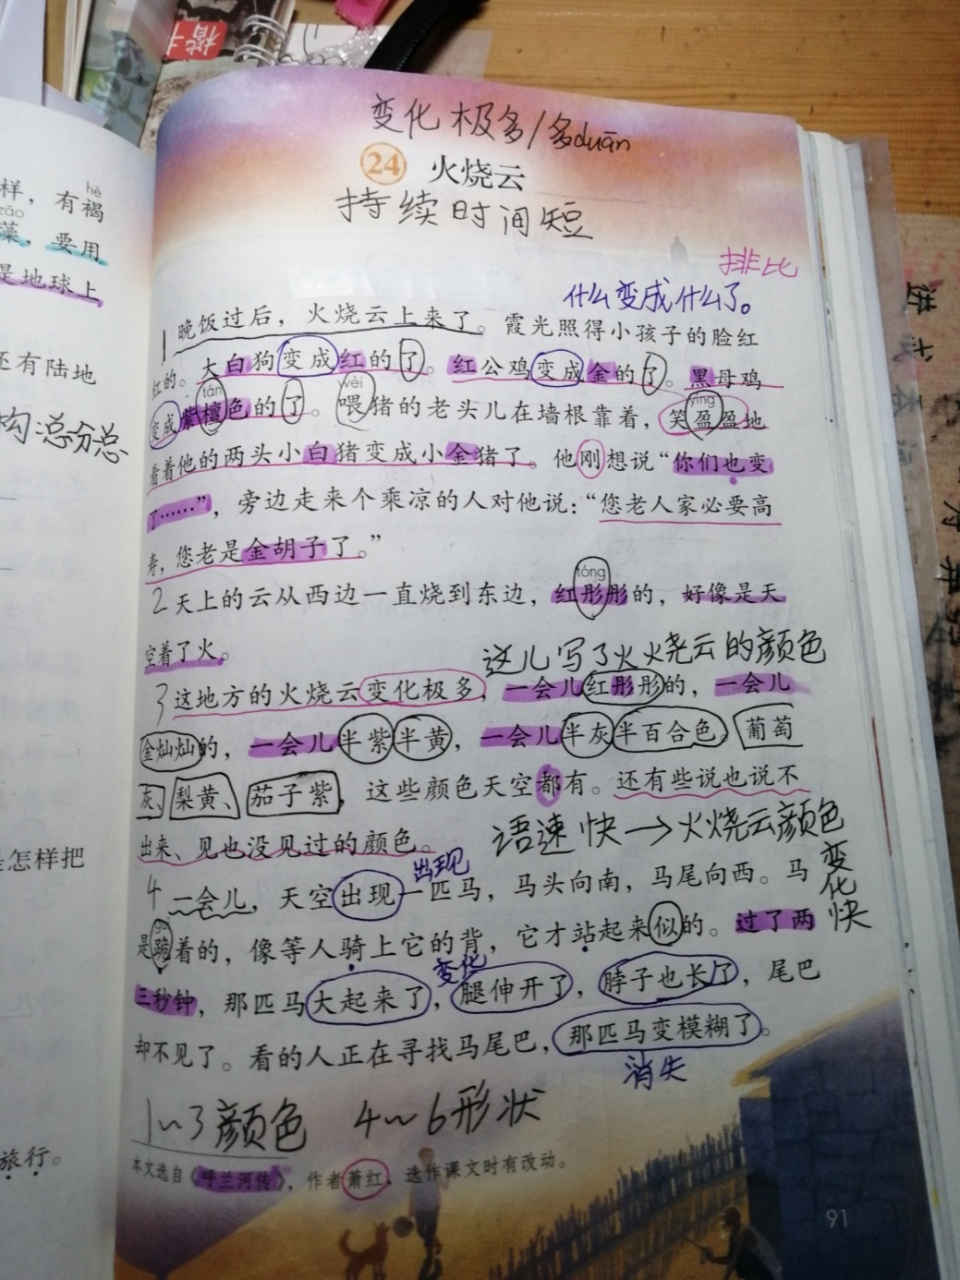 楷
样，有褐
hè
藻，要用
zǎo
是地球上
还有陆地
构:总分总
是怎样把
旅行。
变化极多/多duān
24 火烧云
持续时间短
排比
什么变成什么了。
1 晚饭过后，火烧云上来了。霞光照得小孩子的脸红
红的。大白狗变成红的了。红公鸡变成金的了。黑母鸡
tán wèi yíng
变成紫檀色的了。喂猪的老头儿在墙根靠着，笑盈盈地
看着他的两头小白猪变成小金猪了。他刚想说“你们也变
了……”，旁边走来个乘凉的人对他说：“您老人家必要高
寿，您老是金胡子了。”
tóng
2 天上的云从西边一直烧到东边，红彤彤的，好像是天
空着了火。
这儿写了火火烧云的颜色
3 这地方的火烧云变化极多，一会儿红彤彤的，一会儿
金灿灿的，一会儿半紫半黄，一会儿半灰半百合色。葡萄
灰、梨黄、茄子紫，这些颜色天空都有。还有些说也说不
出来、见也没见过的颜色。
语速快→火烧云颜色
变化快
出现
4 一会儿，天空出现一匹马，马头向南，马尾向西。马
是跪着的，像等人骑上它的背，它才站起来似的。过了两
变化
三秒钟，那匹马大起来了，腿伸开了，脖子也长了，尾巴
却不见了。看的人正在寻找马尾巴，那匹马变模糊了。
消失
1~3颜色 4~6形状
本文选自《呼兰河传》，作者萧红，选作课文时有改动。
91